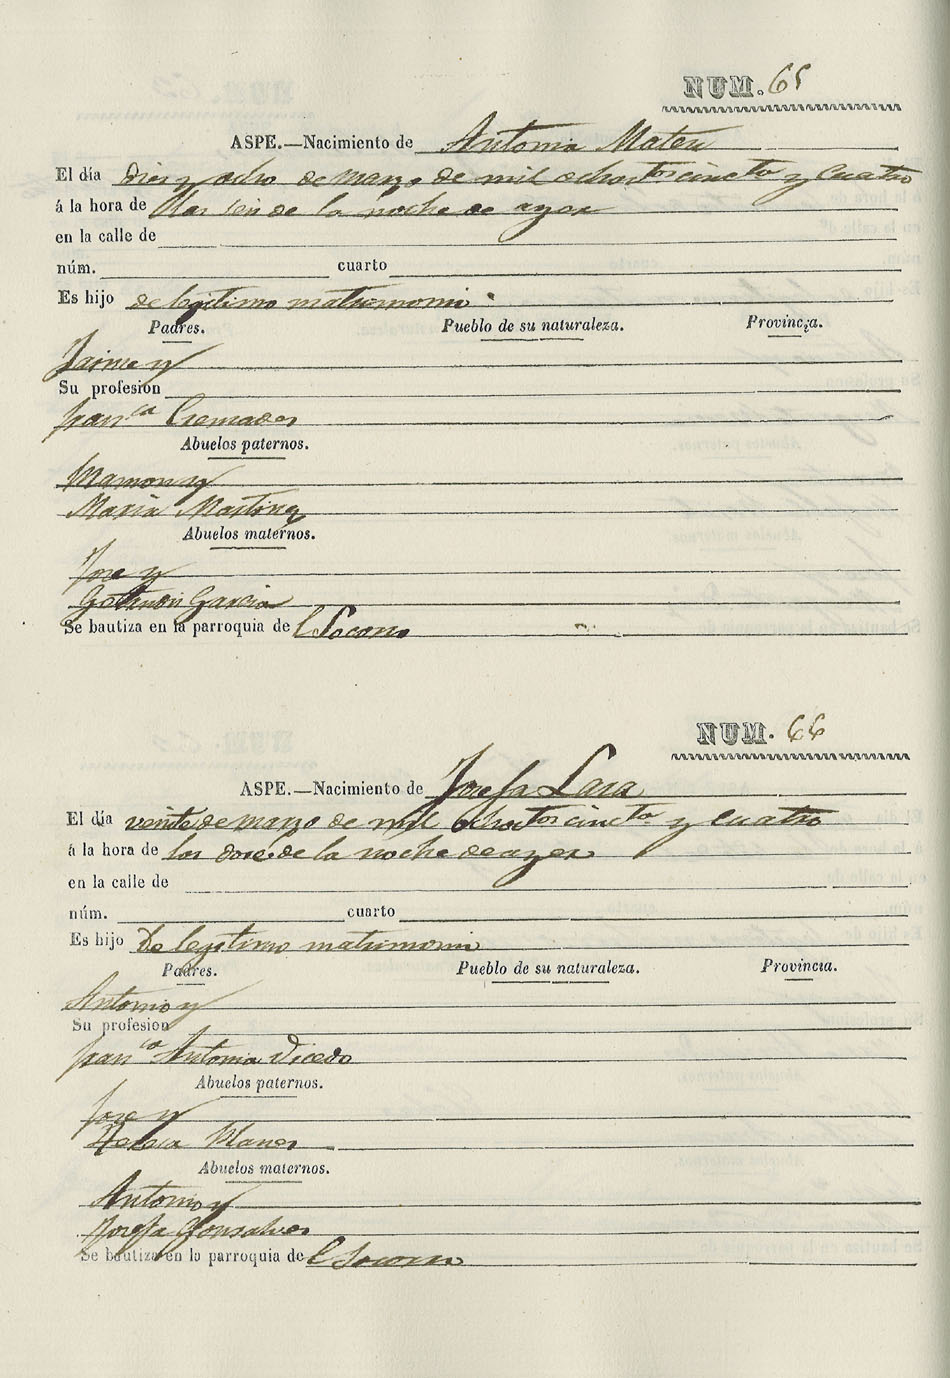 NUM. 65
ASPE.—Nacimiento de Antonia Mateu
El día diez y ocho de marzo de mil ochostos cincta y cuatro
á la hora de las seis de la noche de ayer
en la calle de
núm. cuarto
Es hijo de legitimo matrimonio
Padres. Pueblo de su naturaleza. Provincia.
Jaime y
Su profesión
Franca Cremades
Abuelos paternos.
Ramon y
Maria Martinez
Abuelos maternos.
Jose y
Garcia
Se bautiza en la parroquia de l Socorro
NUM. 66
ASPE.—Nacimiento de Josefa Lara
El día veinte de marzo de mil ochostos cincta y cuatro
á la hora de las doce de la noche de ayer
en la calle de
núm. cuarto
Es hijo De legitimo matrimonio
Padres. Pueblo de su naturaleza. Provincia.
Antonio y
Su profesion
Franca Antonia Vicedo
Abuelos paternos.
Jose y
Blanes
Abuelos maternos.
Antonio y
Josefa Gonsalves
Se bautiza en la parroquia de l Socorro